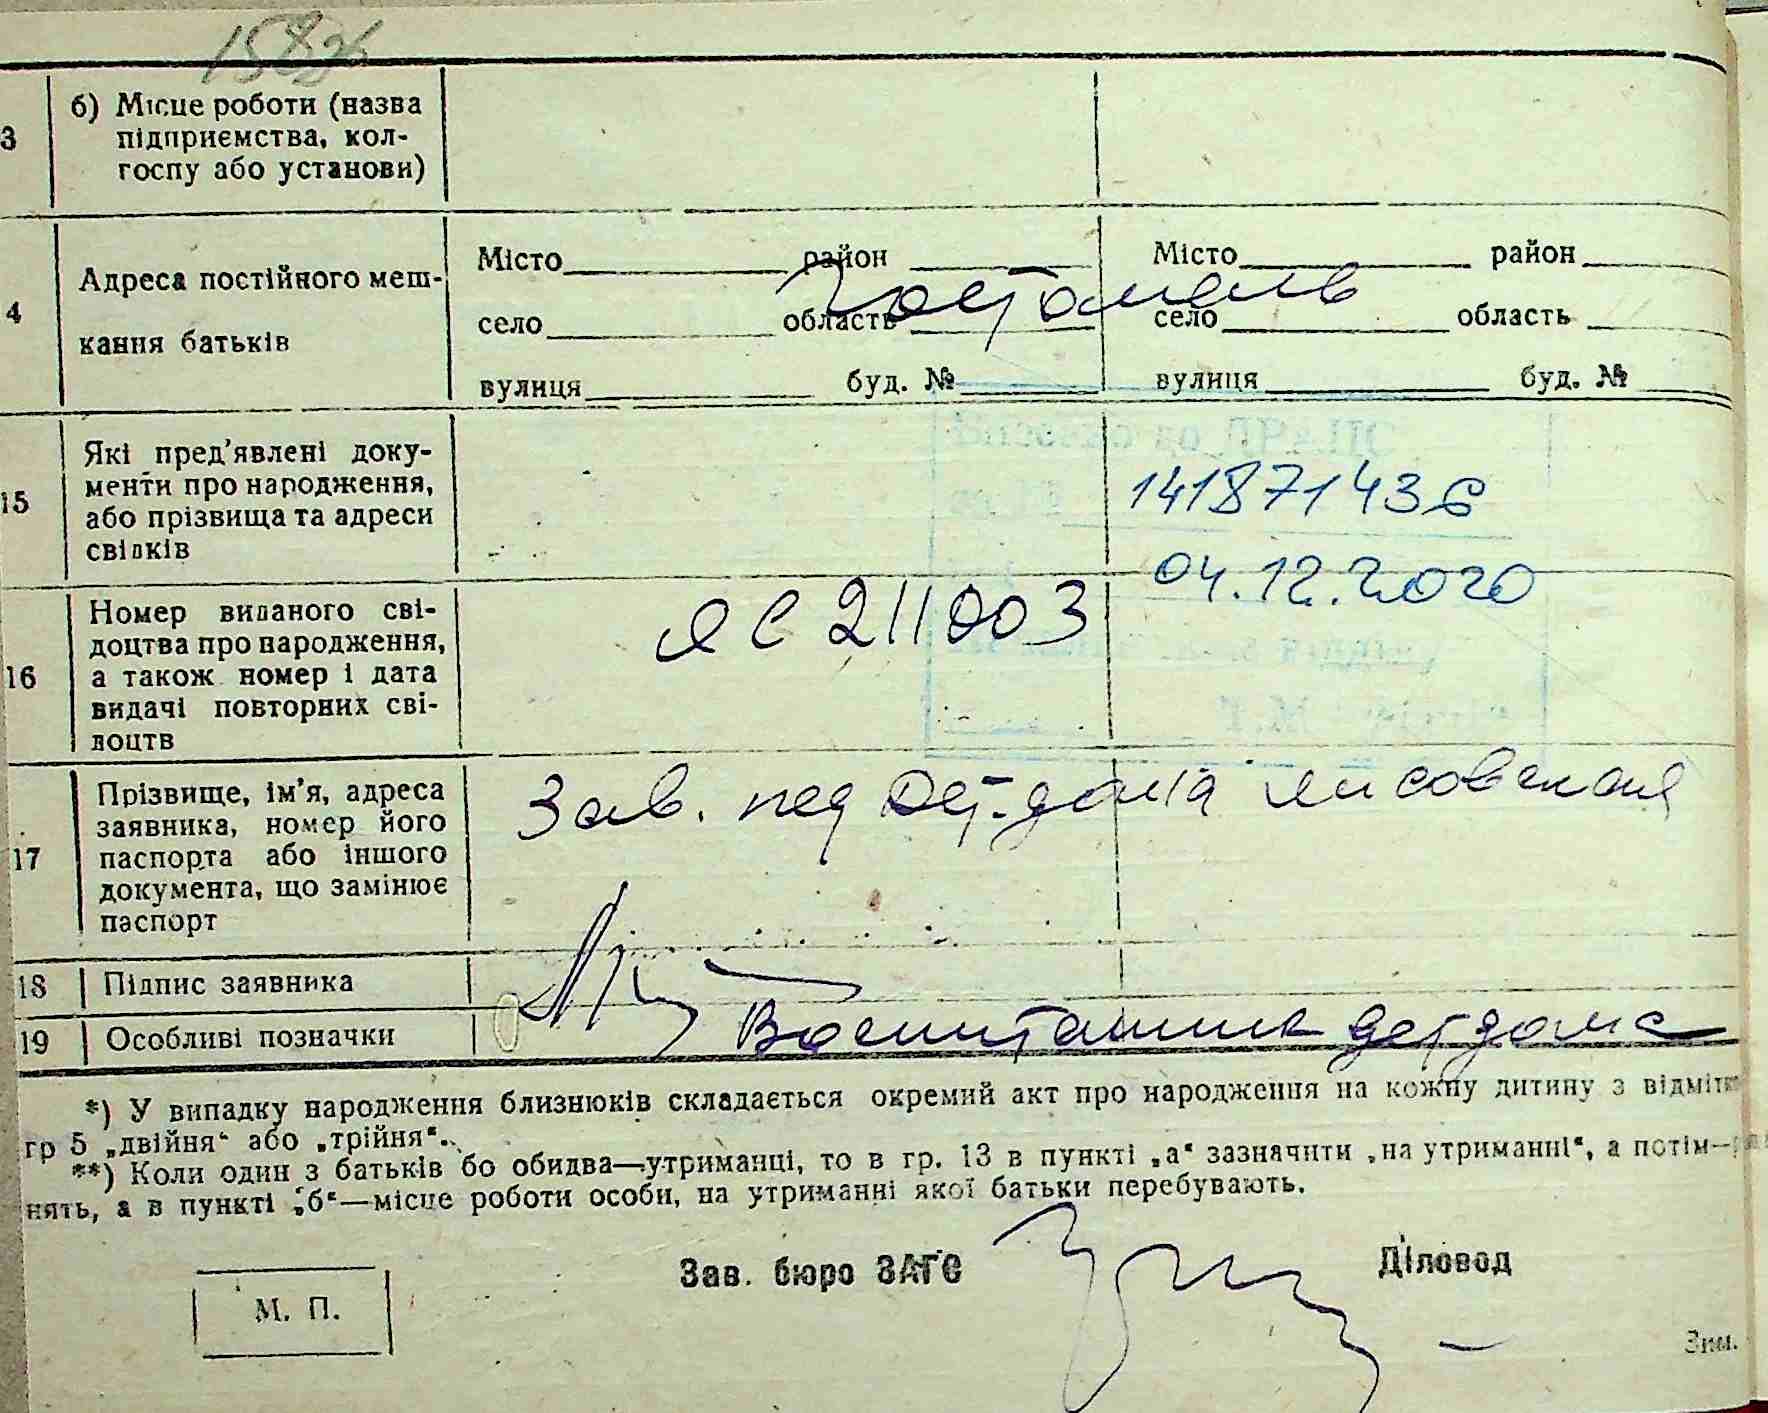 15826
3
б) Місце роботи (назва
підприємства, кол-
госпу або установи)
4
Адреса постійного меш-
кання батьків
Місто район
село область
вулиця буд. №
Місто район
село область
вулиця буд. №
Гостомель
15
Які пред'явлені доку-
менти про народження,
або прізвища та адреси
свідків
141871436
04.12.2020
16
Номер виданого сві-
доцтва про народження,
а також номер і дата
видачі повторних сві-
доцтв
ЯС 211003
17
Прізвище, ім'я, адреса
заявника, номер його
паспорта або іншого
документа, що замінює
паспорт
Зав. пед дет. дома Лисовская
18 Підпис заявника
19 Особливі позначки
Воспитанник детдома
*) У випадку народження близнюків складається окремий акт про народження на кожну дитину з відмітк
гр 5 „двійня“ або „трійня“.
**) Коли один з батьків бо обидва—утриманці, то в гр. 13 в пункті „а“ зазначити „на утриманні“, а потім—
нять, а в пункті „б“—місце роботи особи, на утриманні якої батьки перебувають.
Зав. бюро ЗАГС
Діловод
М. П.
Зам.